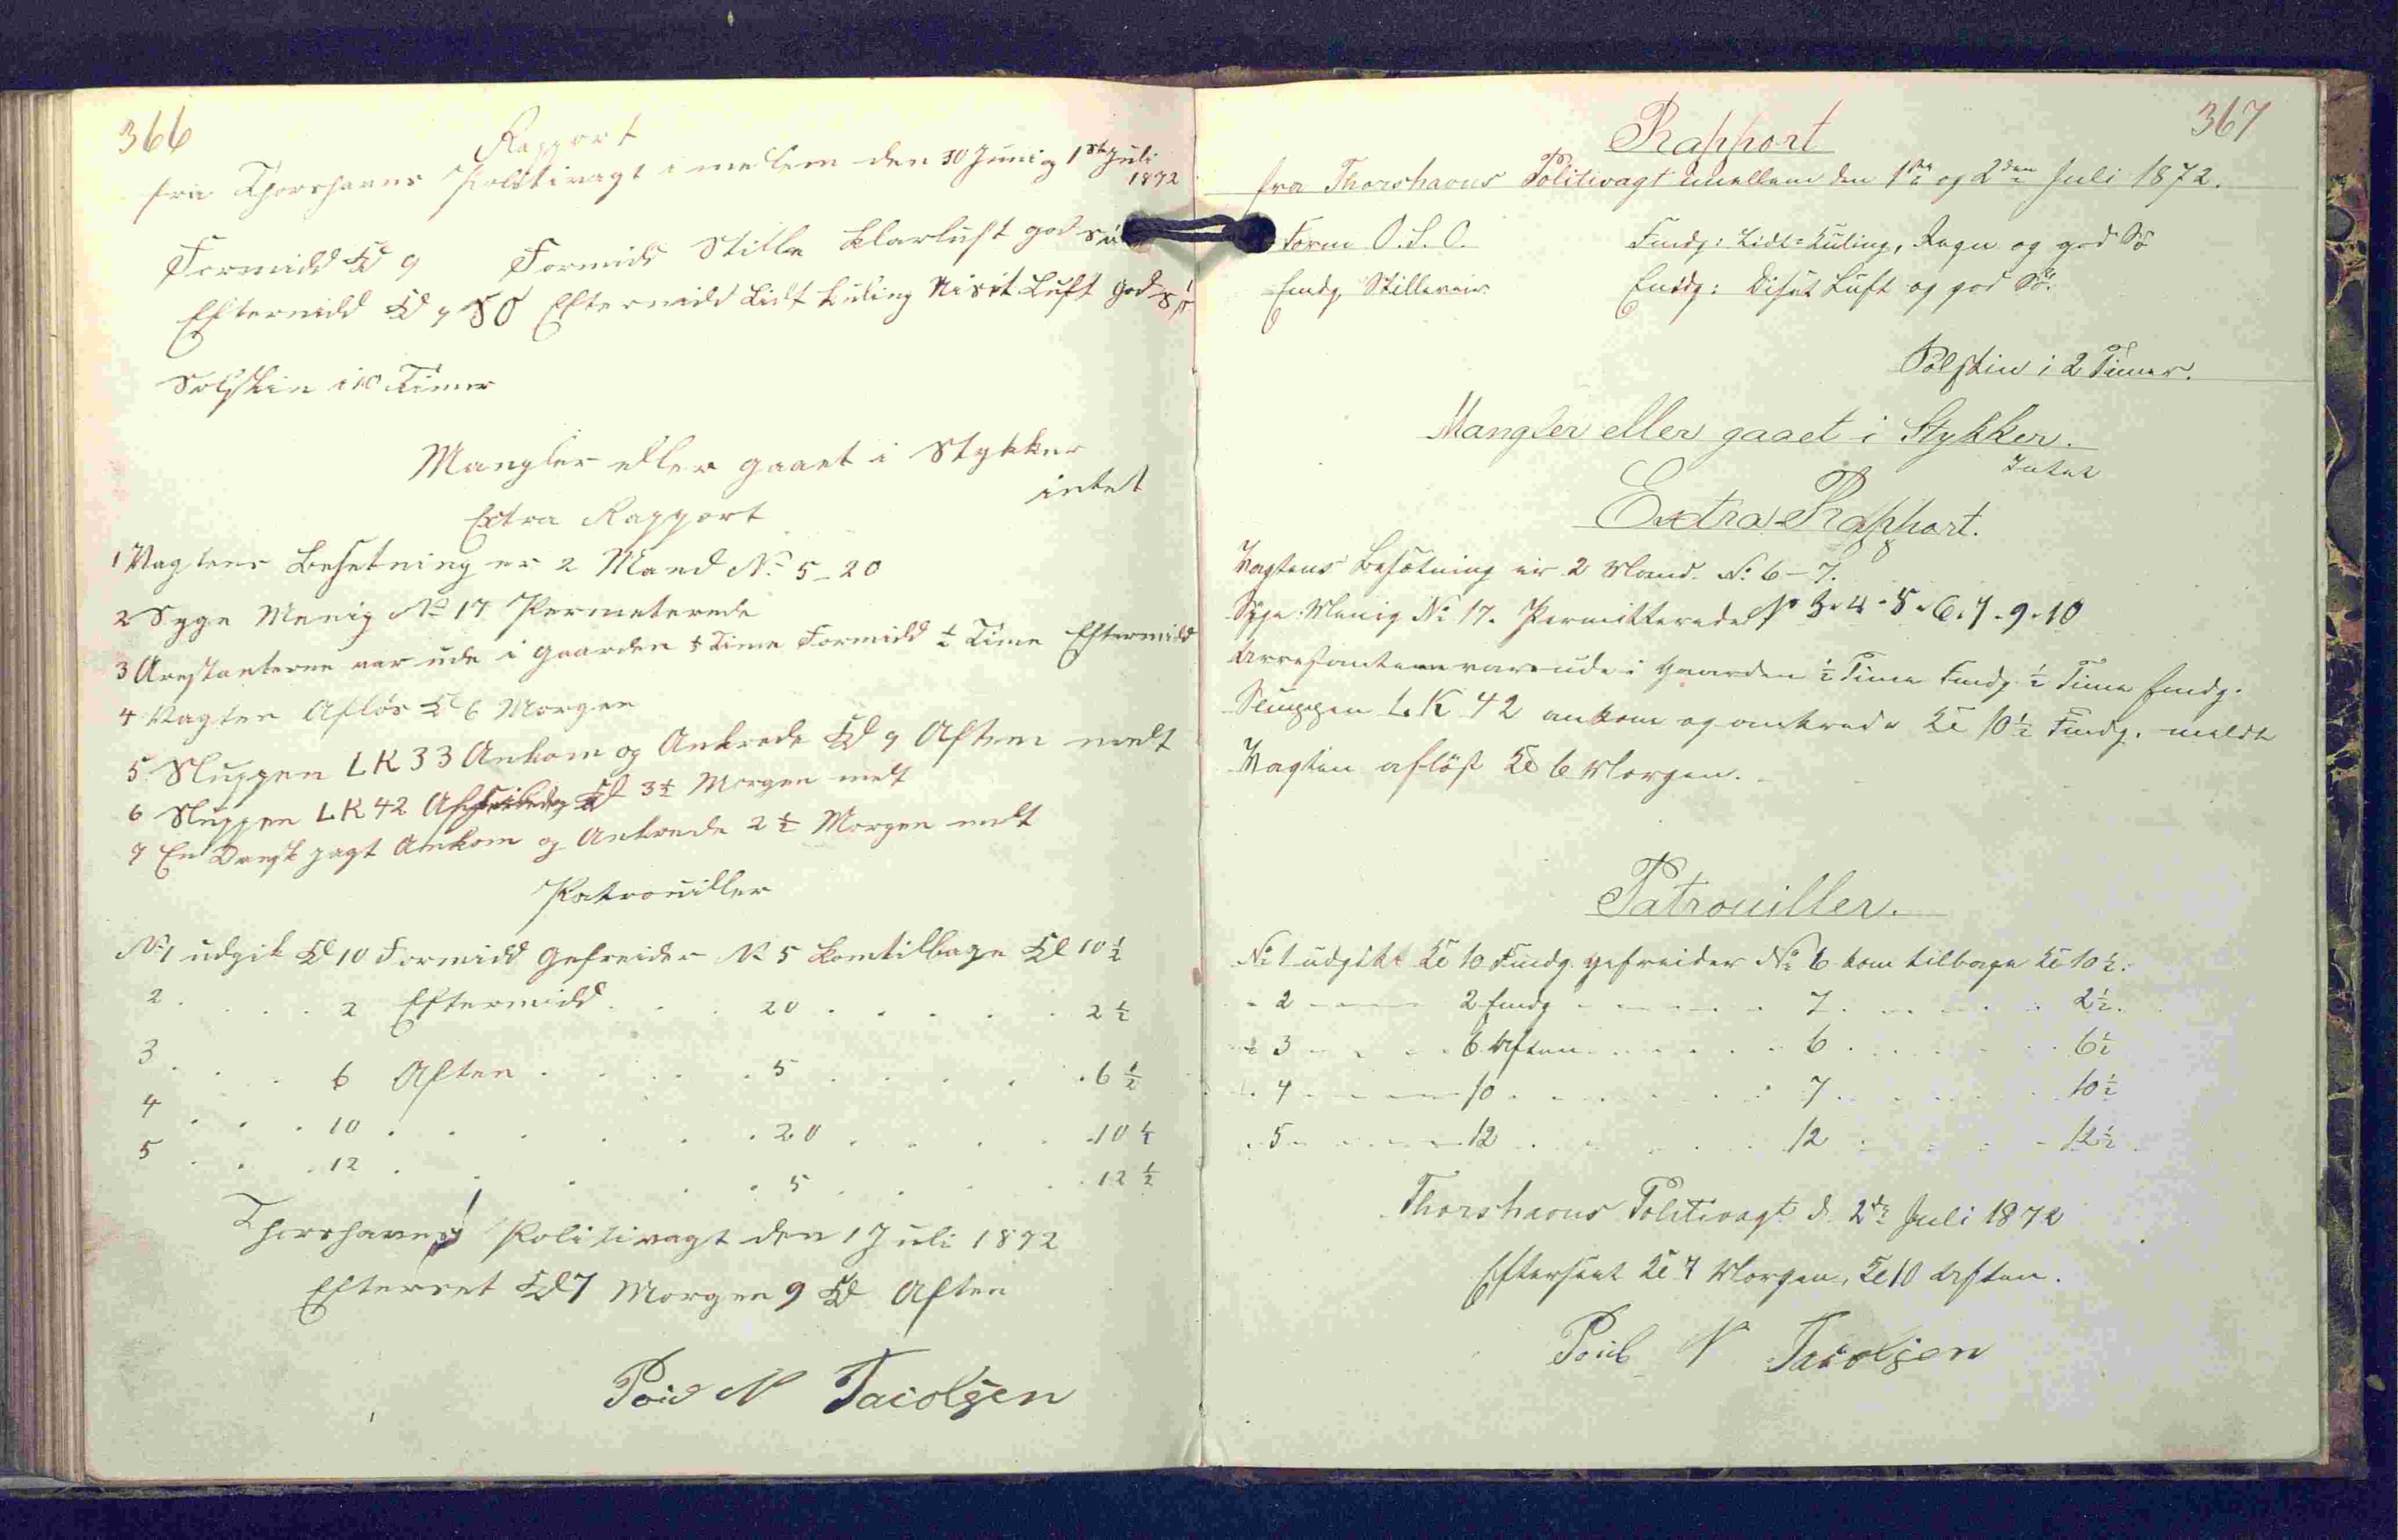 366
Rapport
fra Thorshavns Politivagt imellem den 30 Juni og 1st Juli
1872
Formidd Kl 9 Formidd Stille klarluft god
Eftermidd Kl 9 SO Eftermidd Lidt Kuling Luft god Sö
Solskin i 10 Timer
Mangler eller gaaet i Stykker
intet
Extra Rapport
1 Vagtens Besetning er 2 Mand No 5-20
2 Syge Menig No 17 Permeterede
3 Arestanterne var ude i Gaarden ½ Time Formidd ½ Time Eftermidd
4 Vagten Aflös Kl 6 Morgen
5 Sluppen LK 33 Ankom og Ankrede Kl 9 Aften melt
6 Sluppen LK 42 Kl 3½ Morgen melt
7 En Dansk jagt Ankom og Ankrede 2½ Morgen melt
Patrouiller
No 1 udgik Kl 10 Formidd Gefreider No 5 kom tilbage Kl 10½
2 . . . . 2 Eftermidd . . . 20 . . . . . 2½
3 . . . 6 Aften . . . . . 5 . . . . . 6½
4 . . . 10 . . . . . . 20 . . . . . 10½
5 . . . 12 . . . . . 5 . . . . . 12½
Thorshavns Politivagt den 1 Juli 1872
Efterset Kl 7 Morgen 9 Kl Aften
Poul N Jacobsen
367
Rapport
fra Thorshavns Politivagt imellem den 1ste og 2den Juli 1872.
Form O.S.O. Fmdg: Lidt Kuling, Regn og god Sö
Emdg. Stilleveir Emdg: Diset Luft og god Sö.
Solskin i 2 Timer.
Mangler eller gaaet i Stykker.
Intet
Extra Rapport.
Vagtens Besætning er 2 Mand. No 6-7.
Syge: Menig No 17. Permitterede No 3-4-5-6-7-9-10
Arrestanterne vare ude i Gaarden ½ Time Fmdg. ½ Time Emdg.
Sluppen LK 42 ankom og ankrede Kl 10½ Fmdg. meldt
Vagten aflöst Kl 6 Morgen.
Patrouiller.
No 1 udgikt Kl 10 Fmdg. gefreider No 6 kom tilbage Kl 10½.
- 2 - - - 2 Emdg - - - - - 7 . . . . . 2½.
- 3 - - - 6 Aften . . . . . 6 . . . . . 6½
- 4 - - - 10 . . . . . . 7 . . . . . 10½
- 5 - - - 12 . . . . . . 12 . . . . . 12½
Thorshavns Politivagt d. 2de Juli 1872
Efterseet Kl 7 Morgen, Kl 10 Aften.
Poul N Jacobsen